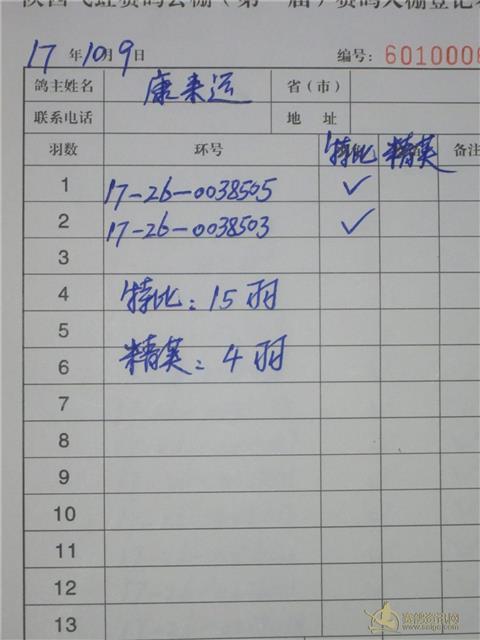 赛鸽公棚（第一届）赛鸽入棚登记
17年10月9日 编号：6010006
鸽主姓名 康来运 省（市）
联系电话 地 址
羽数 环号 特比 精英 备注
1 17-26-0038505 ✓
2 17-26-0038503 ✓
3
4 特比：15羽
5
6 精英：4羽
7
8
9
10
11
12
13
赛鸽资讯网